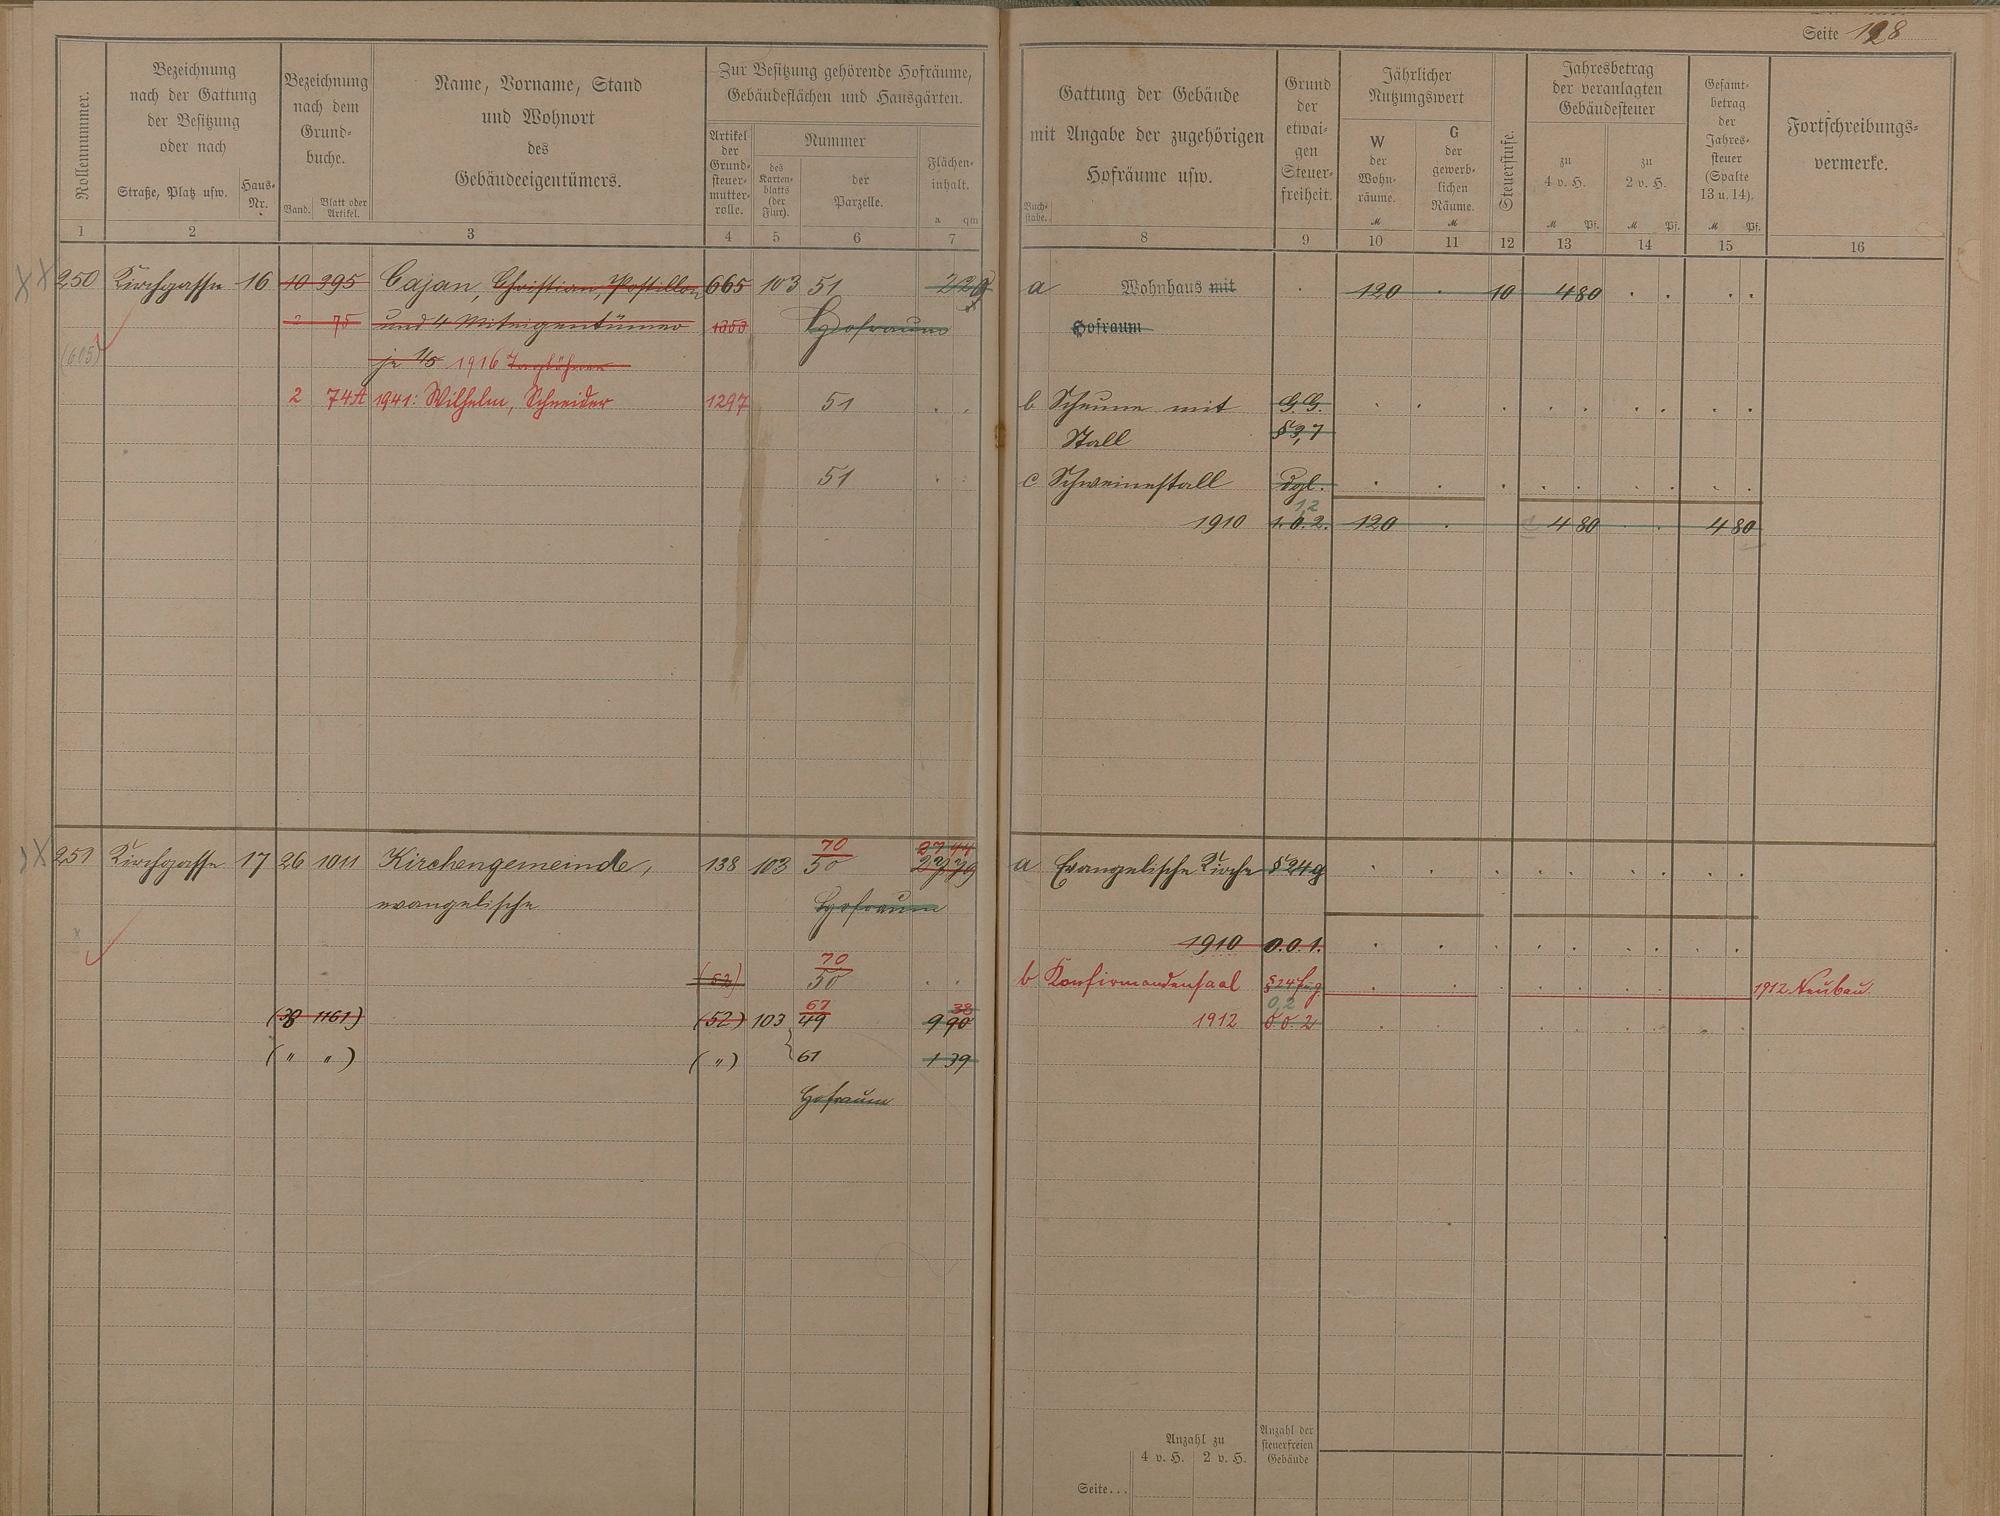 Seite 128
Rollennummer.
Bezeichnung
nach der Gattung
der Besitzung
oder nach
Straße, Platz usw.
Haus-
Nr.
Bezeichnung
nach dem
Grund-
buche.
Band.
Blatt oder
Artikel.
Name, Vorname, Stand
und Wohnort
des
Gebäudeeigentümers.
Zur Besitzung gehörende Hofräume,
Gebäudeflächen und Hausgärten.
Artikel
der
Grund-
steuer-
mutter-
rolle.
Nummer
des
Karten-
blatts
(der
Flur).
der
Parzelle.
Flächen-
inhalt.
a qm
Gattung der Gebäude
mit Angabe der zugehörigen
Hofräume usw.
Buch-
stabe.
Grund
der
etwai-
gen
Steuer-
freiheit.
Jährlicher
Nutzungswert
W
der
Wohn-
räume.
M
G
der
gewerb-
lichen
Räume.
M
Steuerstufe.
Jahresbetrag
der veranlagten
Gebäudesteuer
zu
4 v. H.
M Pf.
zu
2 v. H.
M Pf.
Gesamt-
betrag
der
Jahres-
steuer
(Spalte
13 u. 14).
M Pf.
Fortschreibungs-
vermerke.
1 2 3 4 5 6 7 8 9 10 11 12 13 14 15 16
250 Kirchgasse 16 10 395 Cajan, Christian, Postillon 665 103 51 2 20 a Wohnhaus mit 120 10 4 80
2 75 und 4 Miteigentümer 1353 Hofraum Hofraum
(605) je 1/5 1916 Taglöhner
2 74A 1941: Wilhelm, Schneider 1297 51 b Scheune mit G.G.
Stall § 3,7
51 c Schweinestall dgl.
1,2
1910 1. 0. 2. 120 4 80 4 80
251 Kirchgasse 17 26 1011 Kirchengemeinde, 138 103 70/50 27 44 a Evangelische Kirche § 24g
evangelische Hofraum
1910 0. 0. 1.
(52) 70/50 b Konfirmandensaal 1912 Neubau
0,2
(38 1161) (52) 103 67/49 9 90 38 1912 0. 0. 2
(" ") (") 61 1 39
Hofraum
Anzahl zu
4 v. H. 2 v. H.
Anzahl der
steuerfreien
Gebäude
Seite...